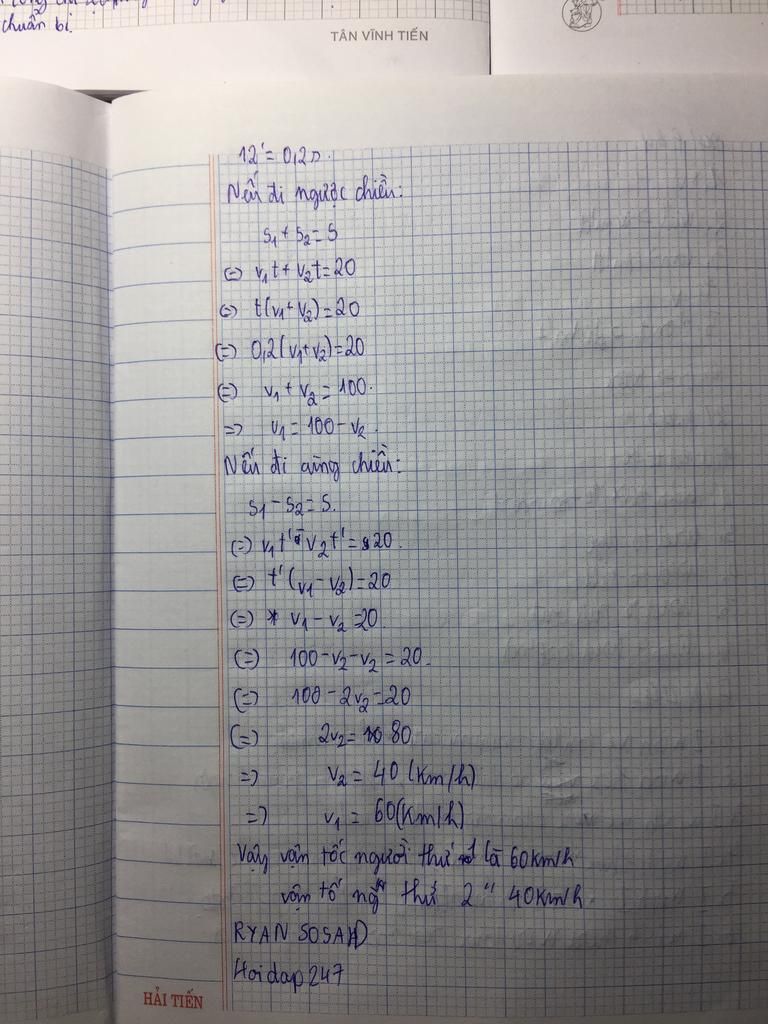 chuẩn bị.
TÂN VĨNH TIẾN
12' = 0,2h.
Nếu đi ngược chiều:
s₁ + s₂ = S
(=) v₁t + v₂t = 20
(=) t(v₁ + v₂) = 20
(=) 0,2(v₁ + v₂) = 20
(=) v₁ + v₂ = 100.
=> v₁ = 100 - v₂.
Nếu đi cùng chiều:
s₁ - s₂ = S.
(=) v₁t' - v₂t' = 20.
(=) t'(v₁ - v₂) = 20
(=) v₁ - v₂ = 20.
(=) 100 - v₂ - v₂ = 20.
(=) 100 - 2v₂ = 20
(=) 2v₂ = 80
=> v₂ = 40 (km/h)
=> v₁ = 60 (km/h)
Vậy vận tốc người thứ 1 là 60km/h
vận tố ng thứ 2 " 40km/h
RYAN SOSAD
Hoidap247
HẢI TIẾN